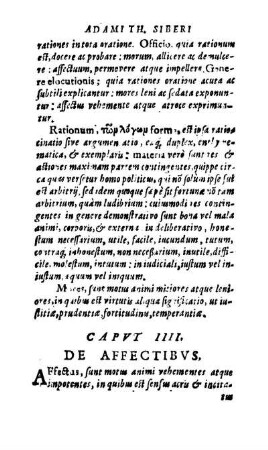 ADAMI TH. SIBERI
rationes in tota oratione. Officio, quia rationum
est, docere ac probare: morum, allicere ac demulce-
re: affectuum, permovere atque impellere. Gene-
re elocutionis: quia rationes oratione acuta ac
subtili explicantur: mores leni ac sedata exponun-
tur: affectus vehemente atque atroce exprimun-
tur.
Rationum, τῶν λόγων forma, est ipsa ratio
cinatio sive argumentatio, eaq; duplex, enthyme-
matica, & exemplaris: materia verò sunt res &
actiones maximam partem contingentes, quippe cir
ca quas versetur homo politicus, qui nō solum ipse sit
est arbitrij, sed idem quoque sæpè sit fortunæ nō tam
arbitrium, quàm ludibrium: cuiusmodi res contin-
gentes in genere demonstrativo sunt bona vel mala
animi, corporis, & externa: in deliberativo, hone-
stum necessarium, utile, facile, iucundum, tutum,
contraq; inhonestum, non necessarium, inutile, diffi-
cile, molestum, intutum: in iudiciali, iustum vel in-
iustum, æquum vel iniquum.
Mores, sunt motus animi mitiores atque leni-
ores, in quibus est virtutis aliqua significatio, ut iu-
stitiæ, prudentiæ, fortitudinis, temperantiæ.
CAPVT IIII.
DE AFFECTIBVS.
Affectus, sunt motus animi vehementes atque
impotentes, in quibus est sensus acris & incita-
tus